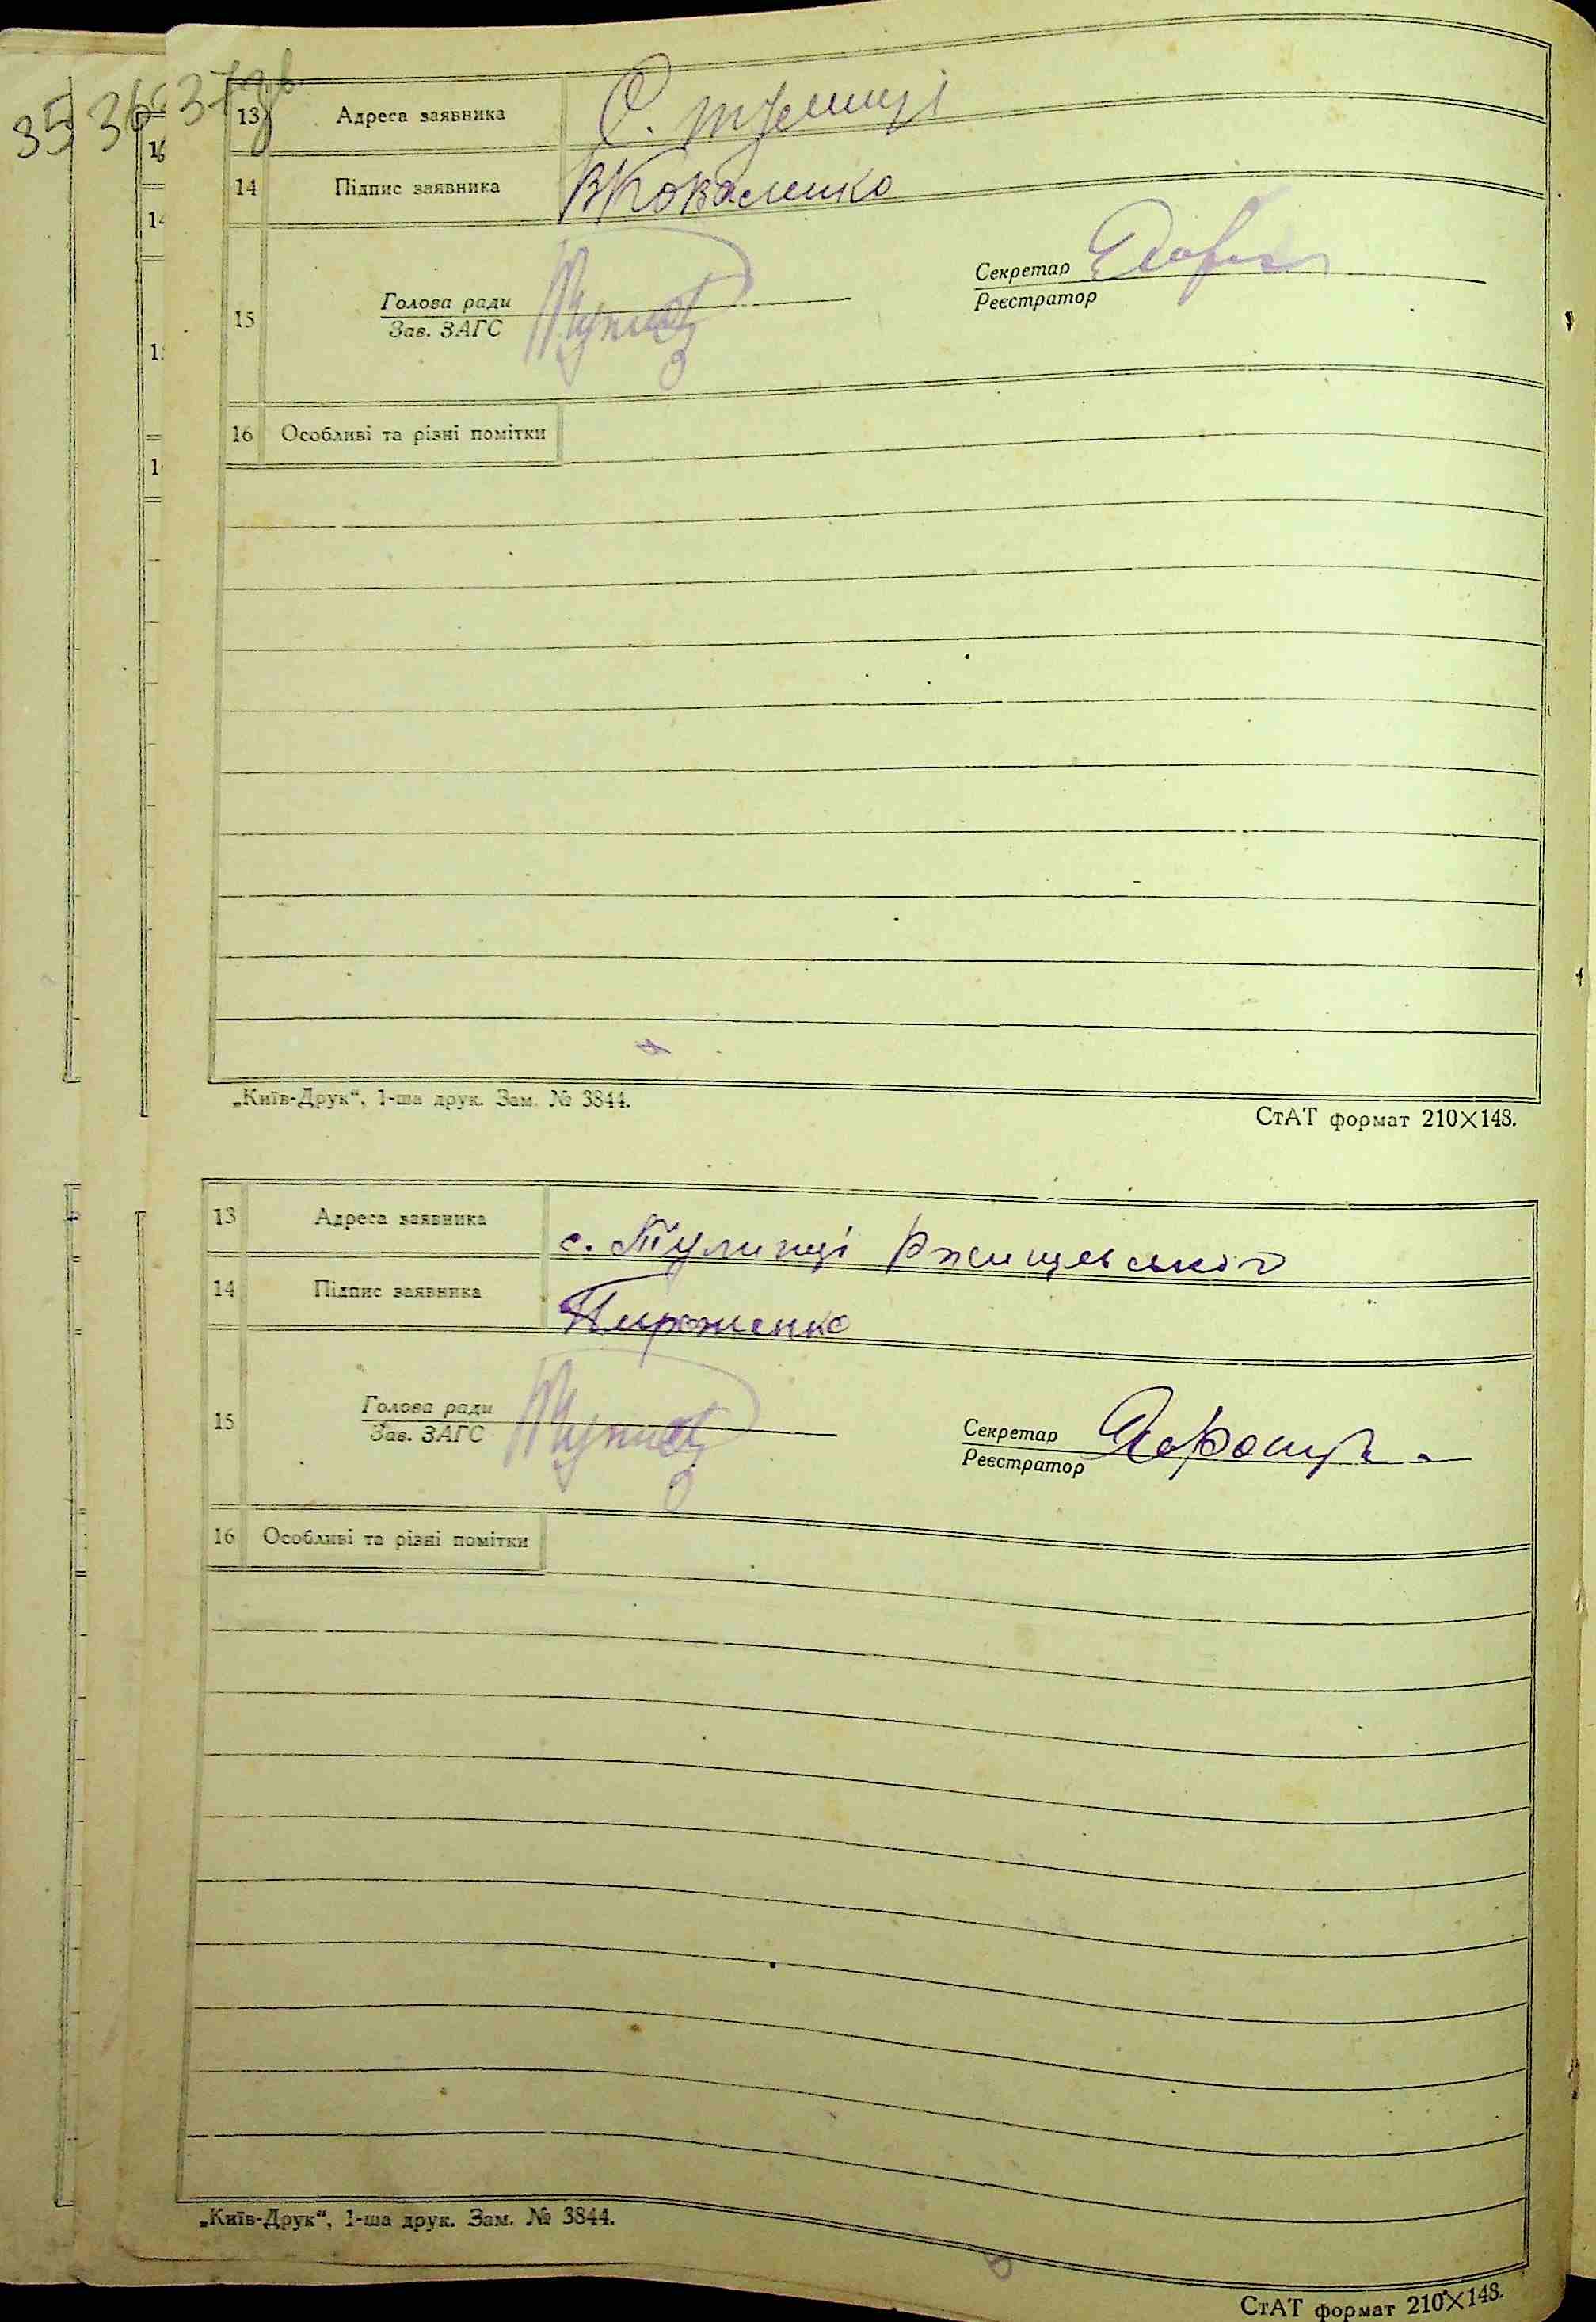 35 36 37зв
13 Адреса заявника С.
14 Підпис заявника ВКоваленко
Секретар
Голова ради Реєстратор
15 Зав. ЗАГС
16 Особливі та різні помітки
„Київ-Друк“, 1-ша друк. Зам. № 3844.
СтАТ формат 210×148.
13 Адреса заявника с. Тулинці Ржищевського
14 Підпис заявника Пироженко
Голова ради Секретар
15 Зав. ЗАГС Реєстратор
16 Особливі та різні помітки
„Київ-Друк“, 1-ша друк. Зам. № 3844.
СтАТ формат 210×148.